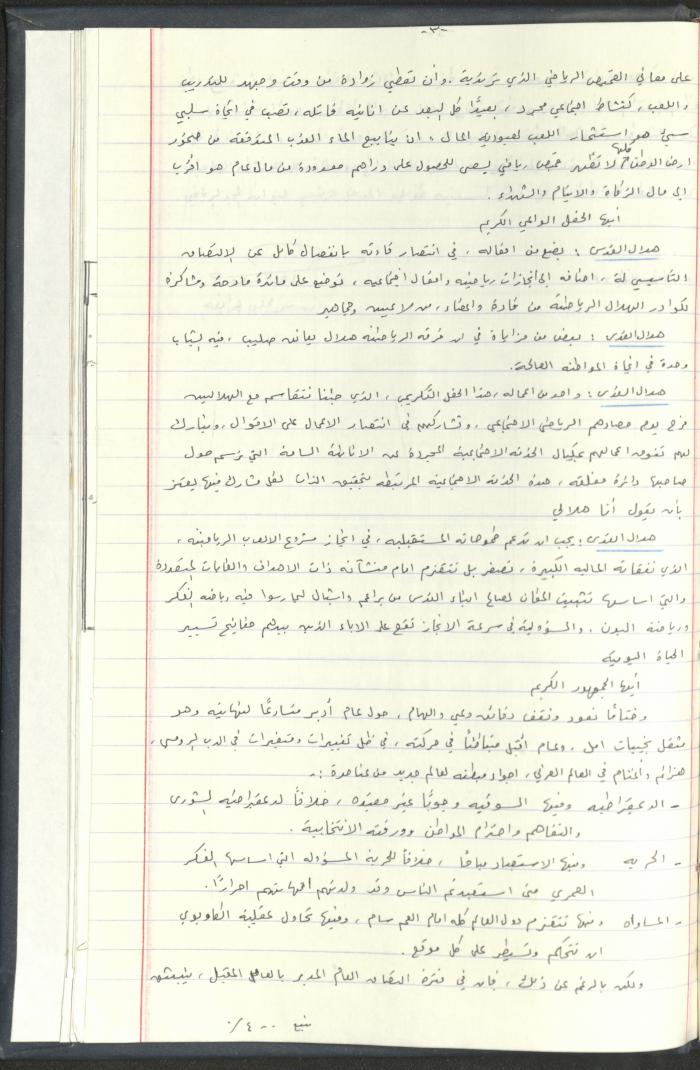 -٣-
على معاني القميص الرياضي الذي ترتديه. وأن تعطي زيادة من وقت وجهد للتدريب
واللعب، كنشاط اجتماعي مجرد، بعيدًا كل البعد عن انانيه قاتله، تصب في اتجاه سلبي
سيئ هو استثمار اللعب لعبودية المال، ان ينابيع الماء العذب المتدفقة من صخور
ارض الوطن كلها لا تطهر قميص رياضي يسعى للحصول على دراهم معدودة من مال عام هو اقرب
الى مال الزكاة والايتام والشهداء.
أيها الحفل الواعي الكريم
هلال القدس: بضع من افعاله، في انتصار قادته بانفصال كامل عن الالتصاق
التأسيسي له، اضافه الى انجازات رياضيه وافعال اجتماعيه، توضع على مائدة مادحة وشاكرة
لكوادر الهلال الرياضية من قادة واعضاء، من لاعبين وجماهير
هلال القدس: بعض من مزاياه في ان فرقه الرياضيه هلال يعانق صليب، فيه لشباب
وحدة في اتجاه المواطنه الصالحة.
هلال القدس: واحد من اعماله، هذا الحفل التكريمي، الذي جئنا نتقاسم مع الهلاليين
فرح يوم حصادهم الرياضي الاجتماعي، ونشاركهم في انتصار الاعمال على الاقوال، ونبارك
لهم تفوق اعمالهم بمكيال الخدمة الاجتماعية المجردة عن الانانية السامة التي ترسم حول
صاحبها دائرة مغلقه، هذه الخدمة الاجتماعية المرتبطه بتحقيق الذات لكل مشارك فيها يعتز
بأن يقول أنا هلالي
هلال القدس: يجب ان ندعم طموحاته المستقبليه، في انجاز مشروع الالعاب الرياضيه،
الذي نفقاته الماليه الكبيرة، تصغر بل تتقزم امام منشآته ذات الاهداف والغايات المتعددة
والتي اساسها تثبيت المكان لصالح ابناء القدس من براعم واشبال ليمارسوا فيه رياضه الفكر
ورياضة البدن. والمسؤولية في سرعة الانجاز تقع على الاباء الذين بيدهم مفاتيح تسيير
الحياة اليوميه
أيها الجمهور الكريم
وختامًا نعود ونقف دقائق وعي والهام، حول عام أدبر متسارعًا لنهايته وهو
مثقل بخيبات امل، وعام اقبل متباطئًا في حركته، في ظل تغييرات ومتغيرات في الدب الروسي،
هزائم و في العالم العربي، اجواء مبطنه لعالم جديد من عناصره :-
- الديمقراطيه وفيها السوقيه وجوبًا غير مقيده، خلافًا لديمقراطيه الشورى
والتفاهم واحترام المواطن وورقته الانتخابية.
- الحريه وفيها الاستعباد مباحًا، خلافًا للحرية المسؤوله التي اساسها الفكر
العمري متى استعبدتم الناس وقد ولدتهم أمهاتهم احرارًا.
- المساواه وفيها تتقزم دول العالم كله امام العم سام، وفيها تحاول عقلية الكاوبوي
ان تتحكم وتسيطر على كل موقع.
ولكن بالرغم عن ذلك، فان في فترة التصاق العام المدبر بالعام المقبل، ينبثق
يتبع --٤/